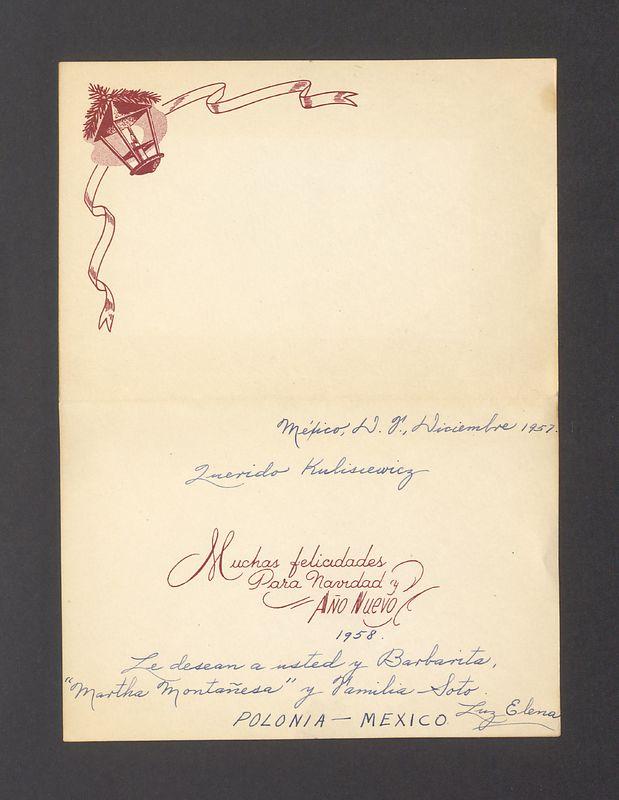 México, D. F., Diciembre 1957.
Querido Kulisiewicz
Muchas felicidades
Para Navidad y
Año Nuevo
1958.
Le desean a usted y Barbarita,
"Martha Montañesa" y Familia Soto.
Luz Elena
POLONIA — MEXICO